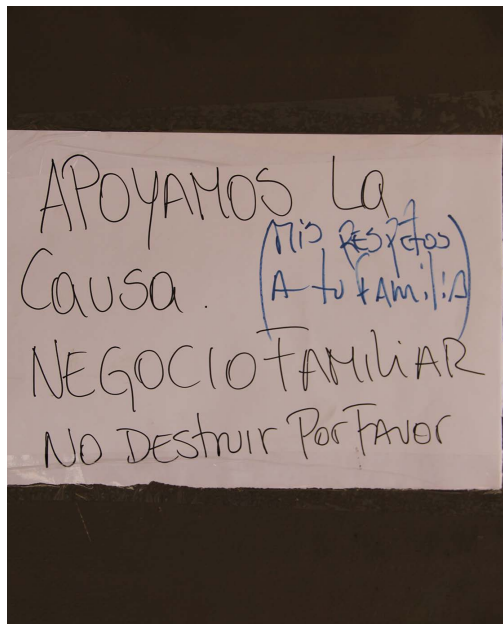 APOYAMOS La
Causa.
(Mis RESPEtos
A tu fAmiliA)
NEGOCIO FAMILiAR
NO DEStruir Por FAVOR